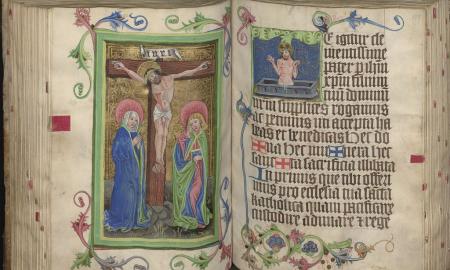 inri
E igitur cle
mentissime
pater p ihm
xpm filium
dominum
nrm supplices rogamus
ac petimus uti accepta ha
beas et benedicas hec do
na hec munera hec
sancta sacrificia illibata
In primis que tibi offeri
mus pro ecclesia tua sancta
katholica quam pacificare
custodire adunare et rege